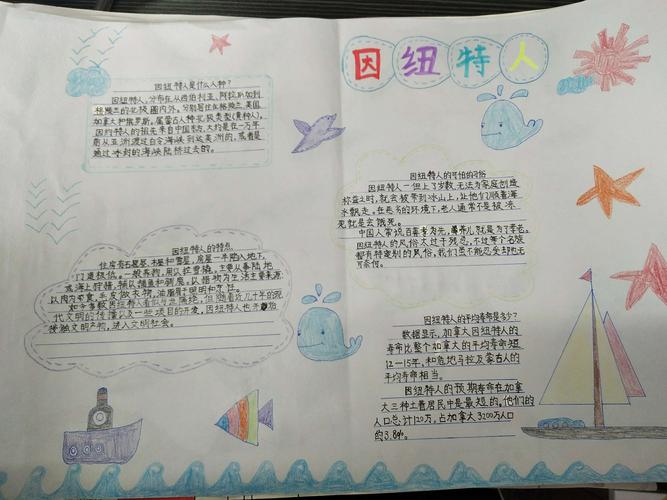 因纽特人
因纽特人是什么人种？
因纽特人，分布在从西伯利亚、阿拉斯加到
格陵兰的北极圈内外。分别居住在格陵兰、美国、
加拿大和俄罗斯。属蒙古人种北极类型(黄种人)。
因纽特人的祖先来自中国东方，大约是在一万年
前从亚洲渡过白令海峡到达美洲的，或者是
通过冰封的海峡陆桥过去的。
因纽特人的特点
住房有石屋、木屋和雪屋，房屋一半陷入地下，
门道极低。一般养狗，用以拉雪橇。主要从事陆地
或海上狩猎，辅以捕鱼和驯鹿。以猎物为主要生活来源：
以肉为食，毛皮做衣物，油脂用于照明和烹饪
和平
代文明的传播以及一些项目的开发，因纽特人也开始
接触文明产物，进入文明社会。
因纽特人的可怕的习俗
因纽特人一但上了岁数，无法为家庭创造
称益之时，就会被带到冰山上，让他们顺着海
水飘走。在恶劣的环境下，老人通常不是被冰
死就是会饿死。
中国人常说百善孝为先，
因纽特人的风俗太过于残忍，不过每个名族
都有特定别的风俗，我们虽不能忍受却也无
可奈何。
因纽特人的平均寿命是多少？
数据显示，加拿大因纽特人的
寿命比整个加拿大的平均寿命短
12—15年，和危地马拉及蒙古人的
平均寿命相当。
因纽特人的预期寿命在加拿
大三种土著居民中是最短的。他们的
人口总计120万，占加拿大3200万人口
的3.8%。